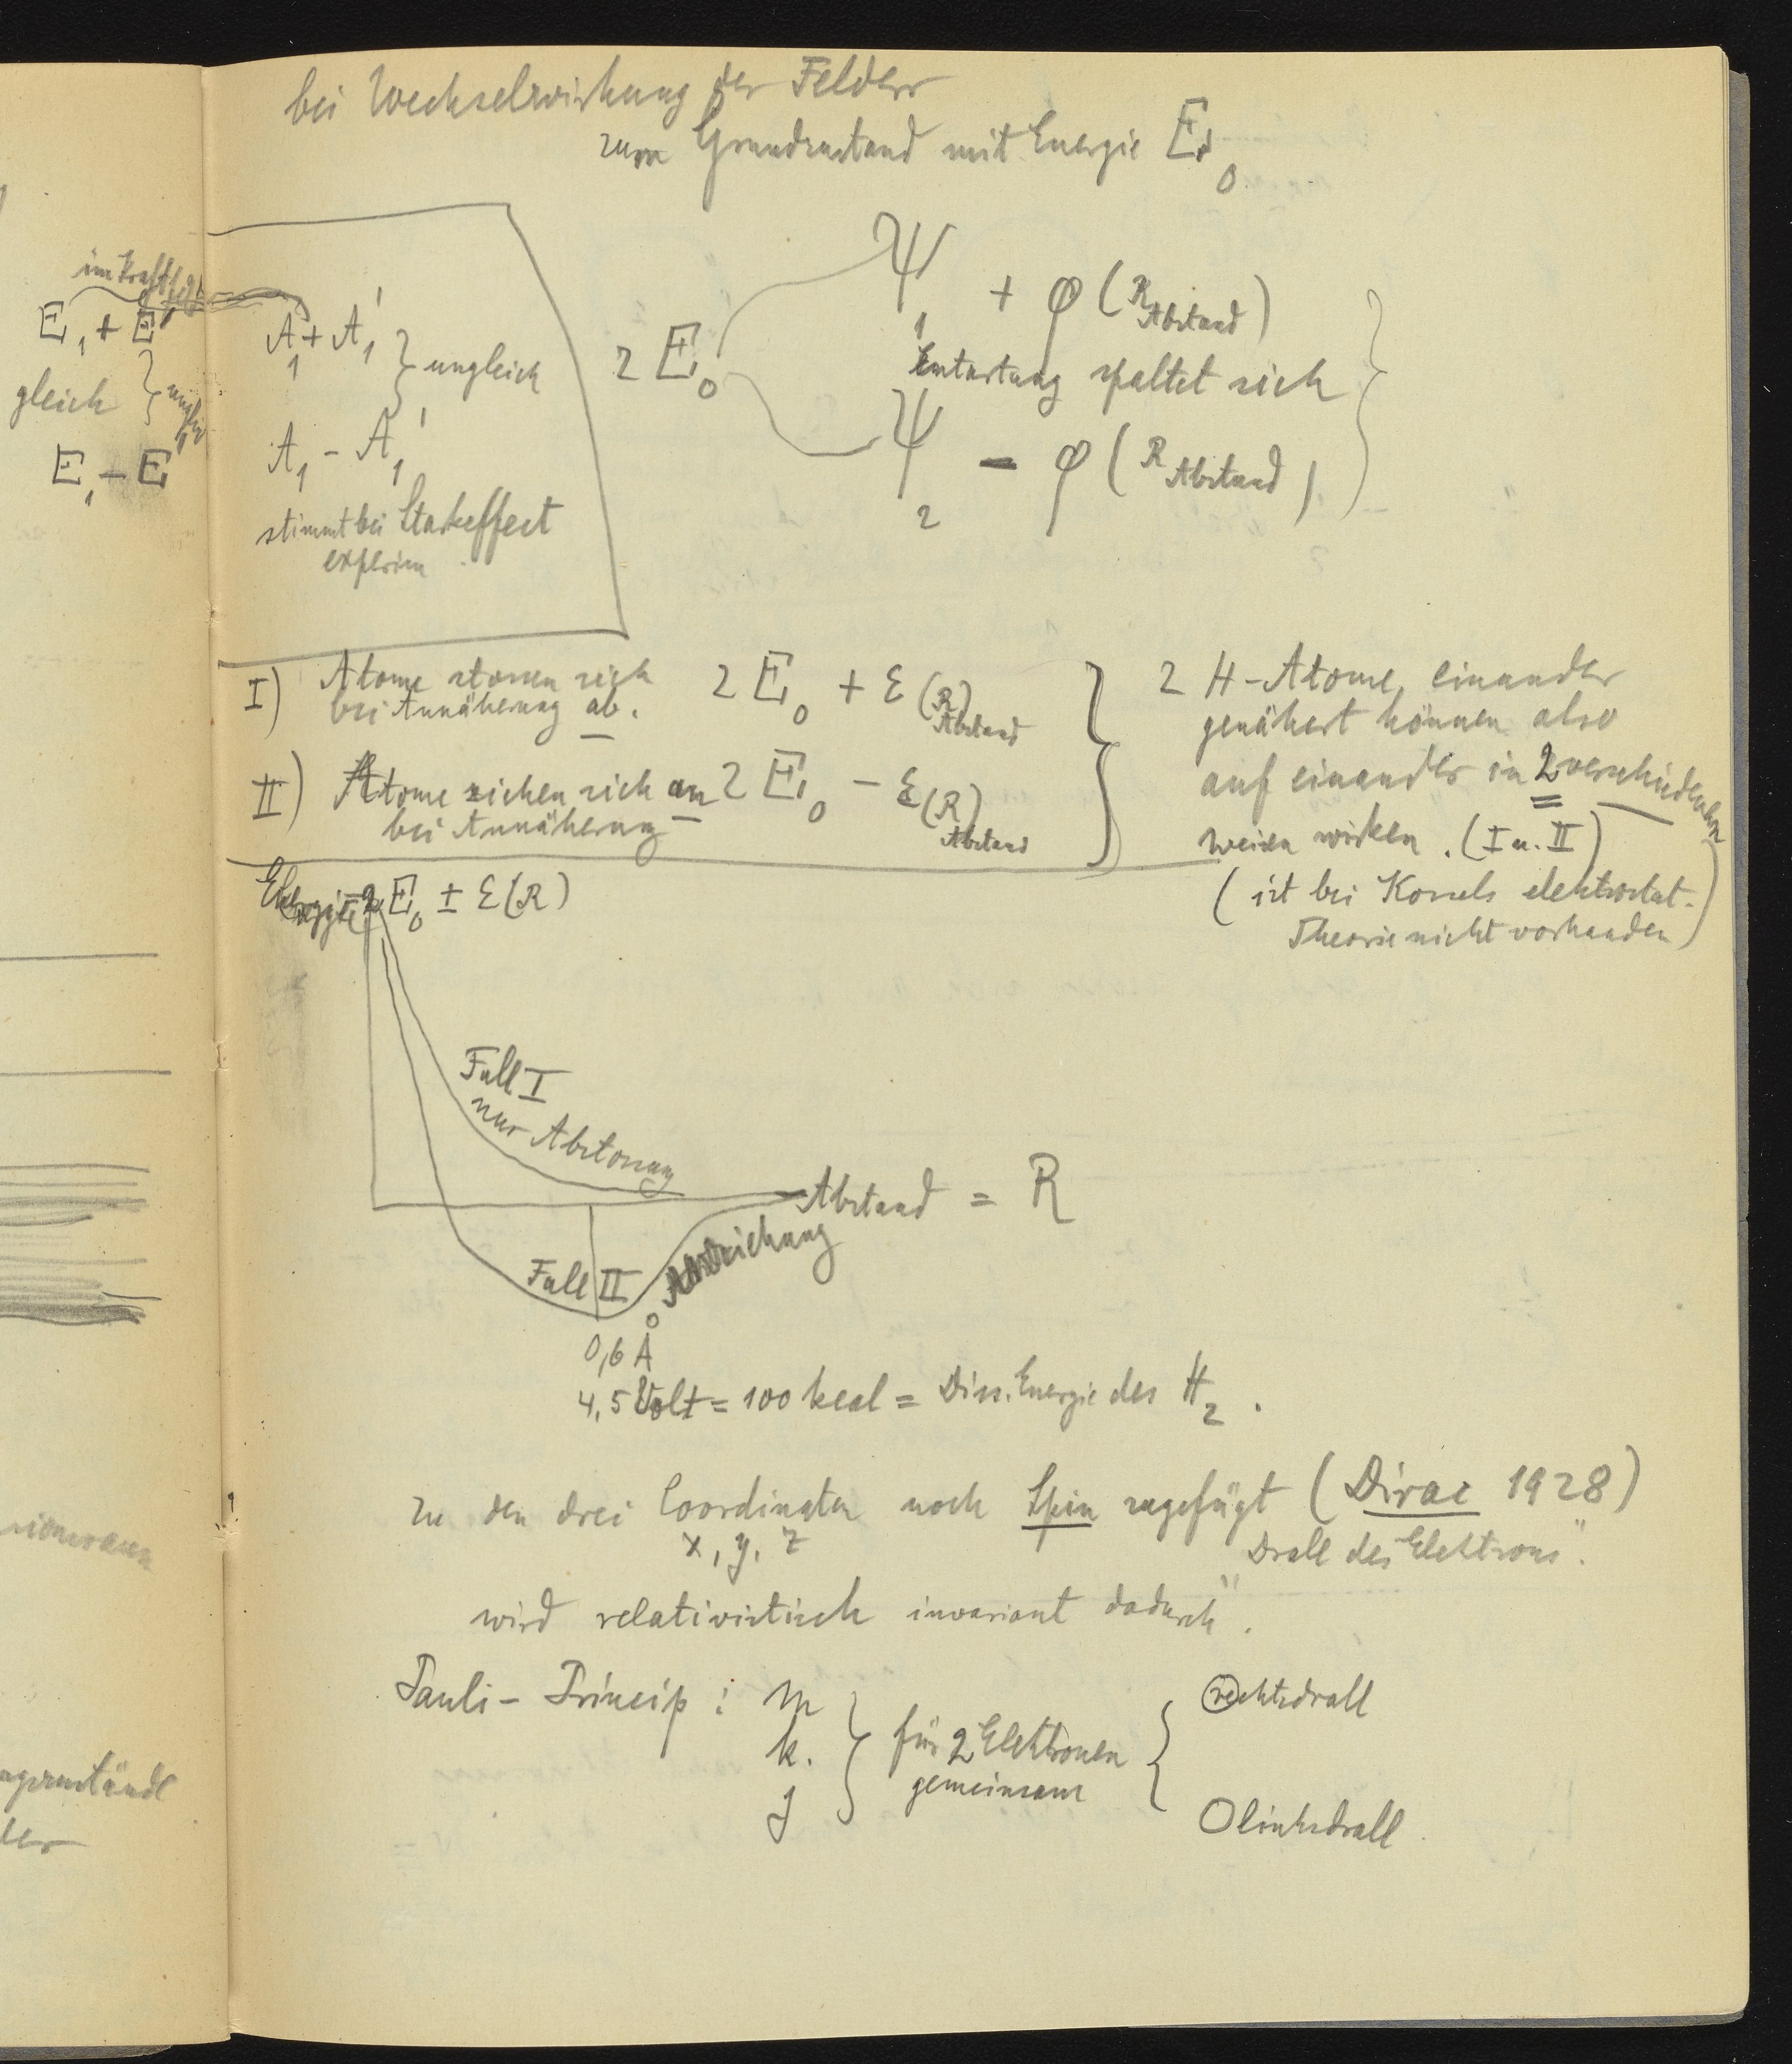 bei Wechselwirkung der Felder
zum Grundzustand mit Energie E₀
im Kraftfeld
E₁ + E'
gleich
E₁ - E'
A₁ + A₁'
} ungleich
A₁ - A₁'
stimmt bei Starkeffect
experim.
2 E₀
Ψ₁ + φ (R Abstand)
Entartung spaltet sich
Ψ₂ - φ (R Abstand)
I) Atome stossen sich
bei Annäherung ab.
2 E₀ + ε (R) Abstand
II) Atome ziehen sich an
bei Annäherung
2 E₀ - ε (R) Abstand
2 H-Atome, einander
genähert können also
auf einander in 2 verschiedenen
weisen wirken. (I u. II)
(ist bei Kossels elektrostat.
Theorie nicht vorhanden)
Energie 2 E₀ ± ε (R)
Fall I
nur Abstossung
Abstand = R
Fall II
Anziehung
0,6 Å
4,5 Volt = 100 kcal = Diss. Energie des H₂.
zu den drei Coordinaten noch Spin zugefügt (Dirac 1928)
x, y, z
Drall des Elektrons".
wird relativistisch invariant dadurch".
Pauli-Princip: m
k.
j
} für 2 Elektronen
gemeinsam {
rechtsdrall
linksdrall
ngszustände
ller